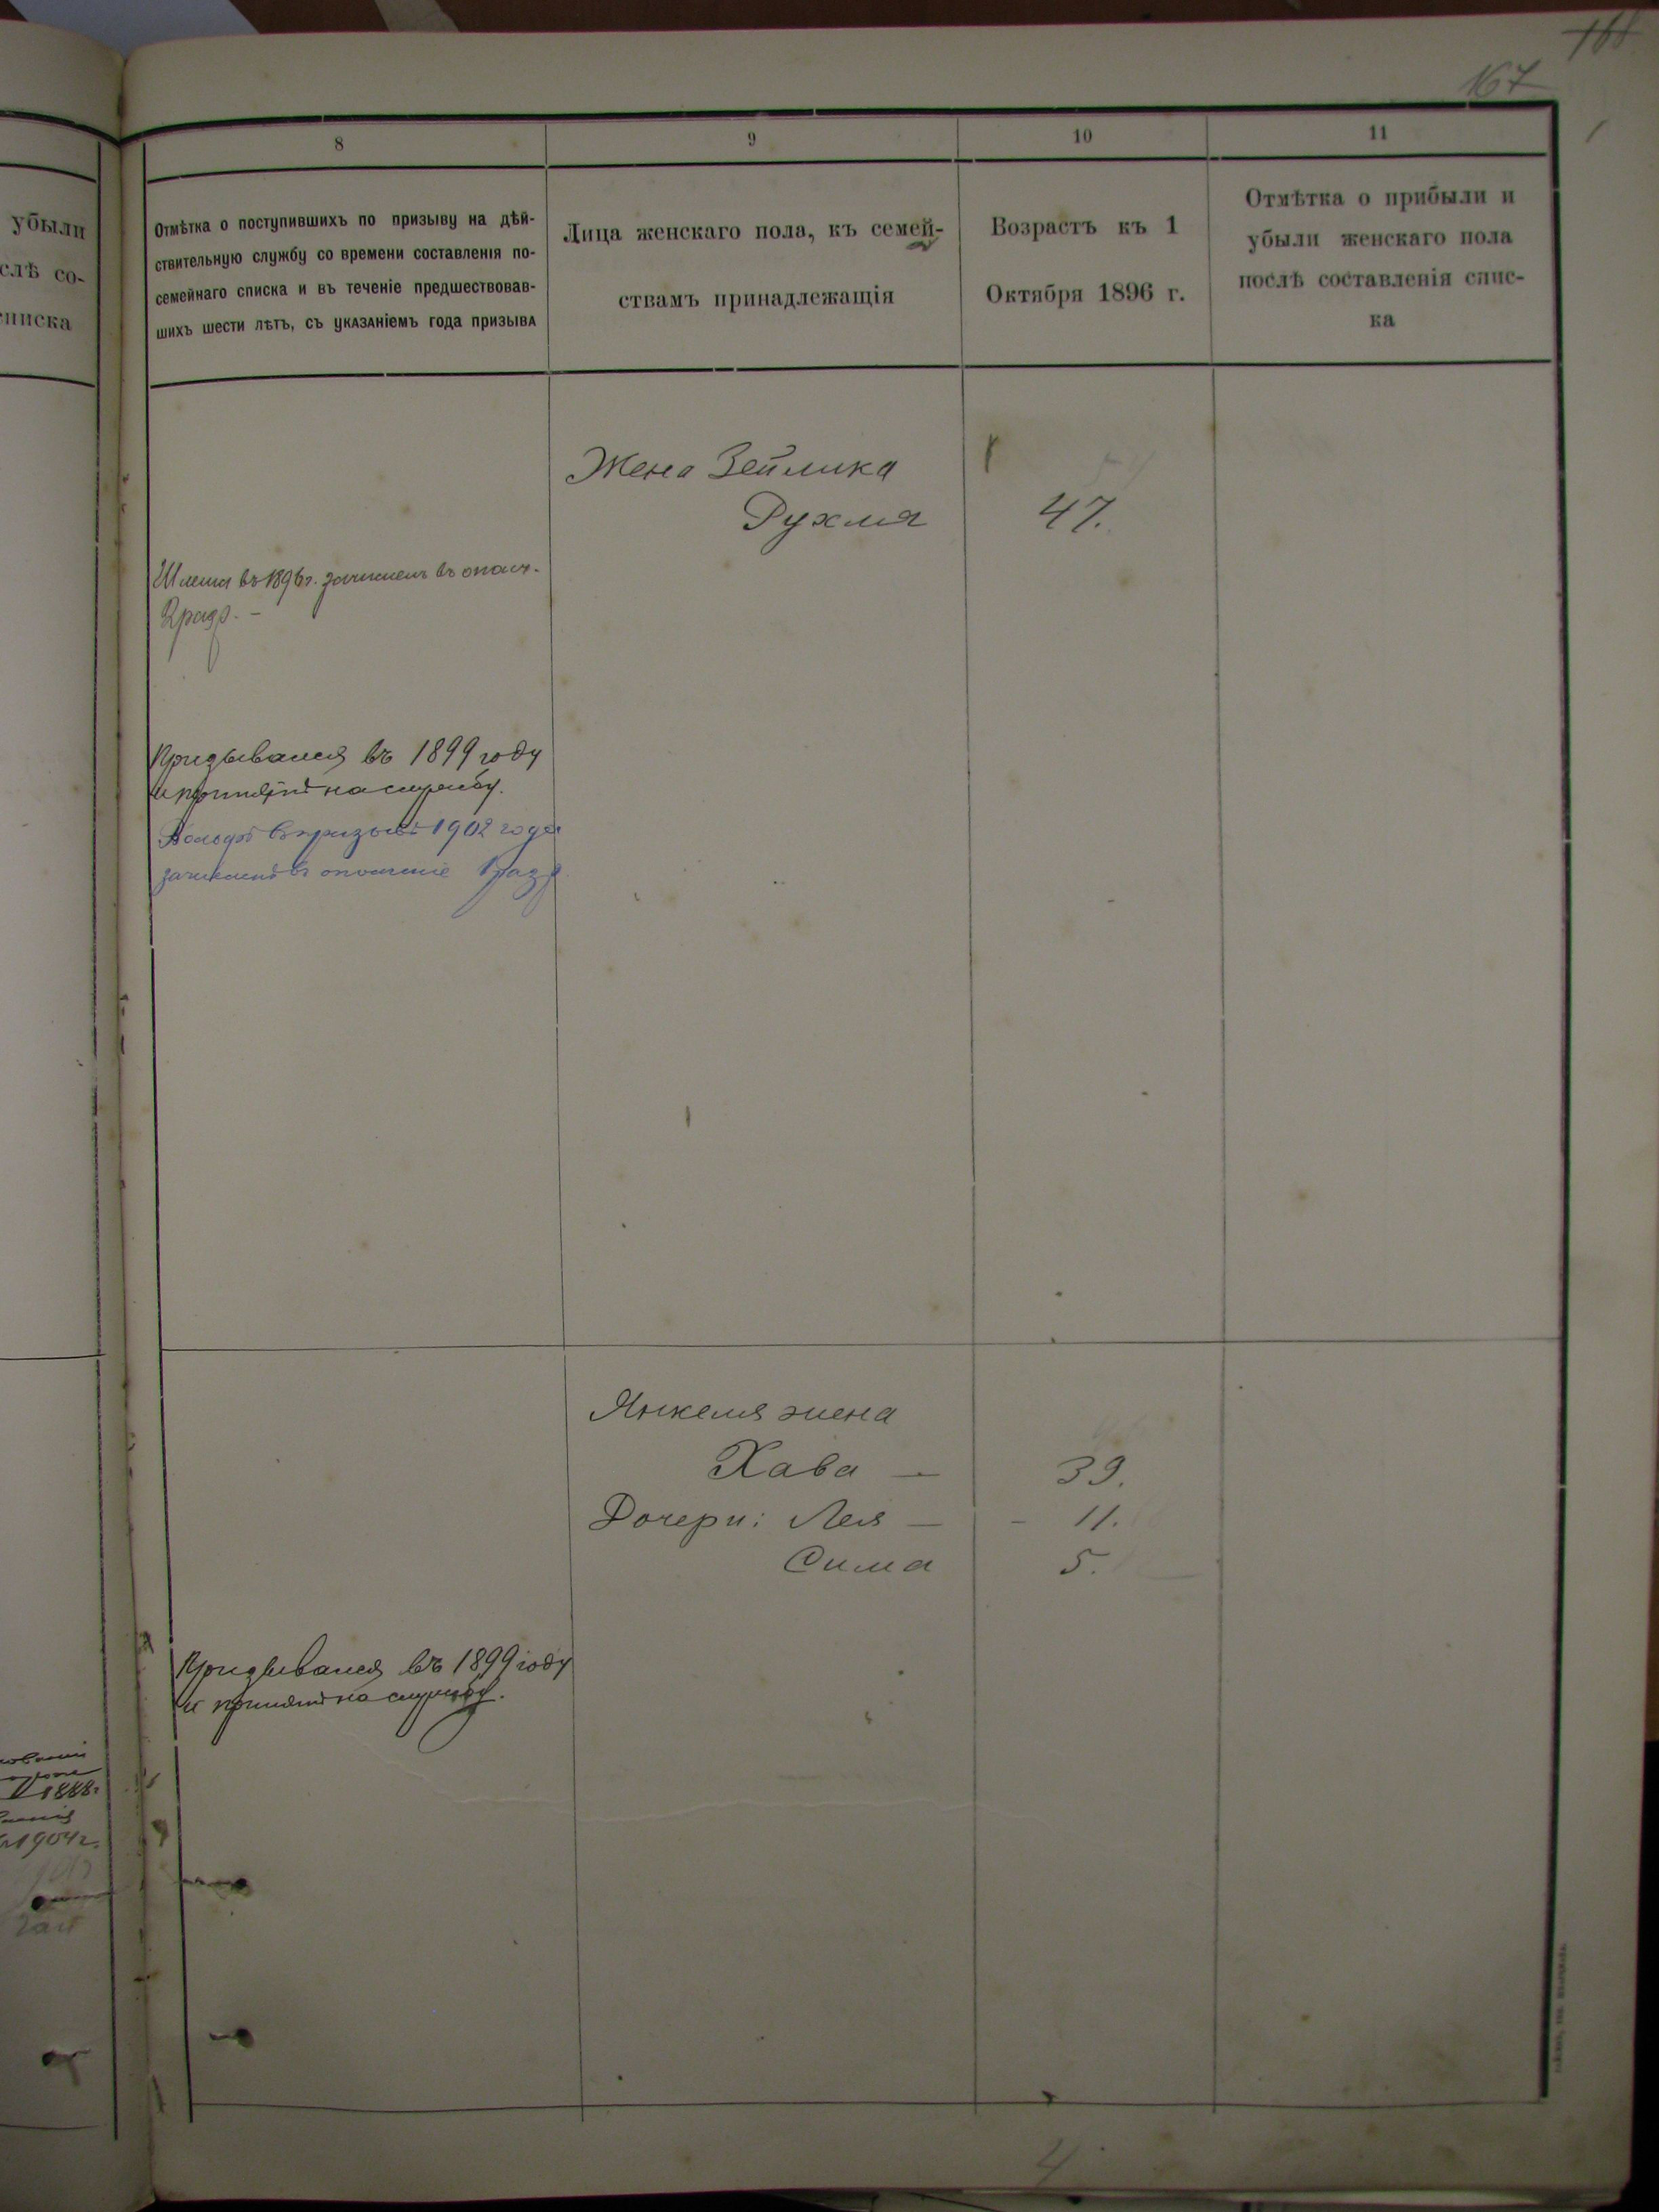 167
8
9
10
11
убыли
слѣ со-
списка
Отмѣтка о поступившихъ по призыву на дѣй-
ствительную службу со времени составленія по-
семейнаго списка и въ теченіе предшествовав-
шихъ шести лѣтъ, съ указаніемъ года призыва
Лица женскаго пола, къ семей-
ствамъ принадлежащія
Возрастъ къ 1
Октября 1896 г.
Отмѣтка о прибыли и
убыли женскаго пола
послѣ составленія спис-
ка
Жена Зейлика
Рухля 47.
въ 1896 г. зачисленъ въ ополч.
2 разр. -
Призывался въ 1899 году
и принятъ на службу.
Вольфъ въ призывѣ 1902 года
зачисленъ въ ополченіе 1 разр.
Янкеля жена
Хава — 39.
Дочери: Лея — - 11.
Сима 5.
Призывался въ 1899 году
и принятъ на службу.
1888г
1904г.
4